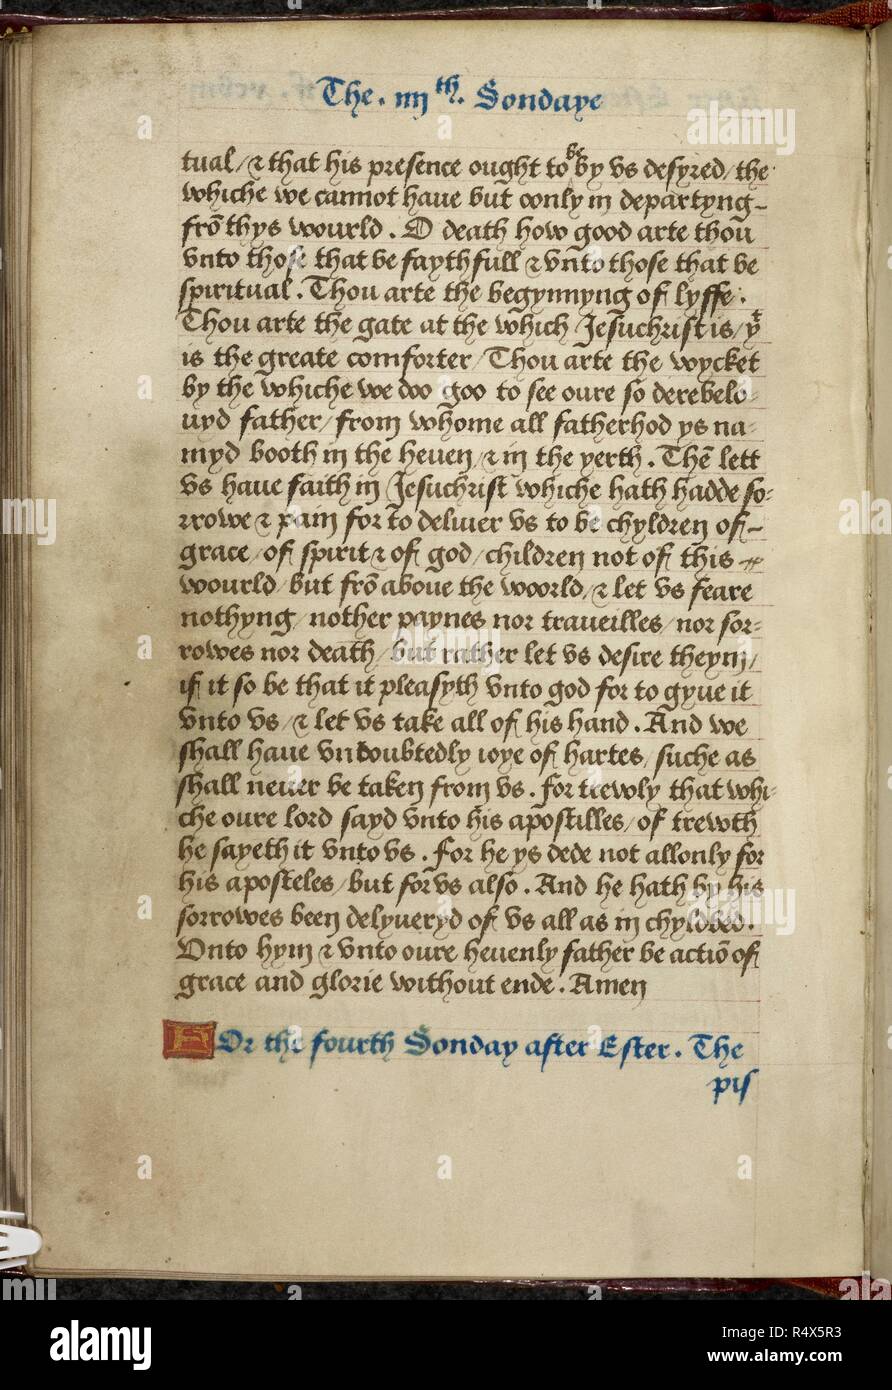 The . iiijth. Sondaye
tual / & that his presence ought to be by vs desyred / the
whiche we cannot haue but oonly in departyng -
frō thys wourld . O death how good arte thou
vnto those that be faythfull & vnto those that be
spiritual . Thou arte the begynnyng of lyffe .
Thou arte the gate at the which Jesuchrist is / yt
is the greate comforter / Thou arte the wycket
by the whiche we doo goo to see oure so derebelo-
uyd father / from whome all fatherhod ys na-
myd booth in the heuen / & in the yerth . Thē lett
vs haue faith in Jesuchrist whiche hath hadde so-
rrowe & pain for to deliuer vs to be chyldren of -
grace / of spirit & of god / children not of this
wourld / but frō aboue the woorld / & let vs feare
nothyng / nother paynes nor traueilles / nor sor=
rowes nor death / but rather let vs desire theym /
if it so be that it pleasyth vnto god for to gyue it
vnto vs / & let vs take all of his hand . And we
shall haue vndoubtedly ioye of hartes / suche as
shall neuer be taken from vs . For trewly that whi-
che oure lord sayd vnto his apostilles / of trewth
he sayeth it vnto vs . For he ys dede not allonly for
his aposteles / but for vs also . And he hath by his
sorrowes been delyueryd of vs all as in chyldbed .
Vnto hym & vnto oure heuenly father be actiō of
grace and glorie without ende . Amen
FOr the fourth Sonday after Ester . The
pis
alamy
a
alamy stock photo
R4X5R3
www.alamy.com